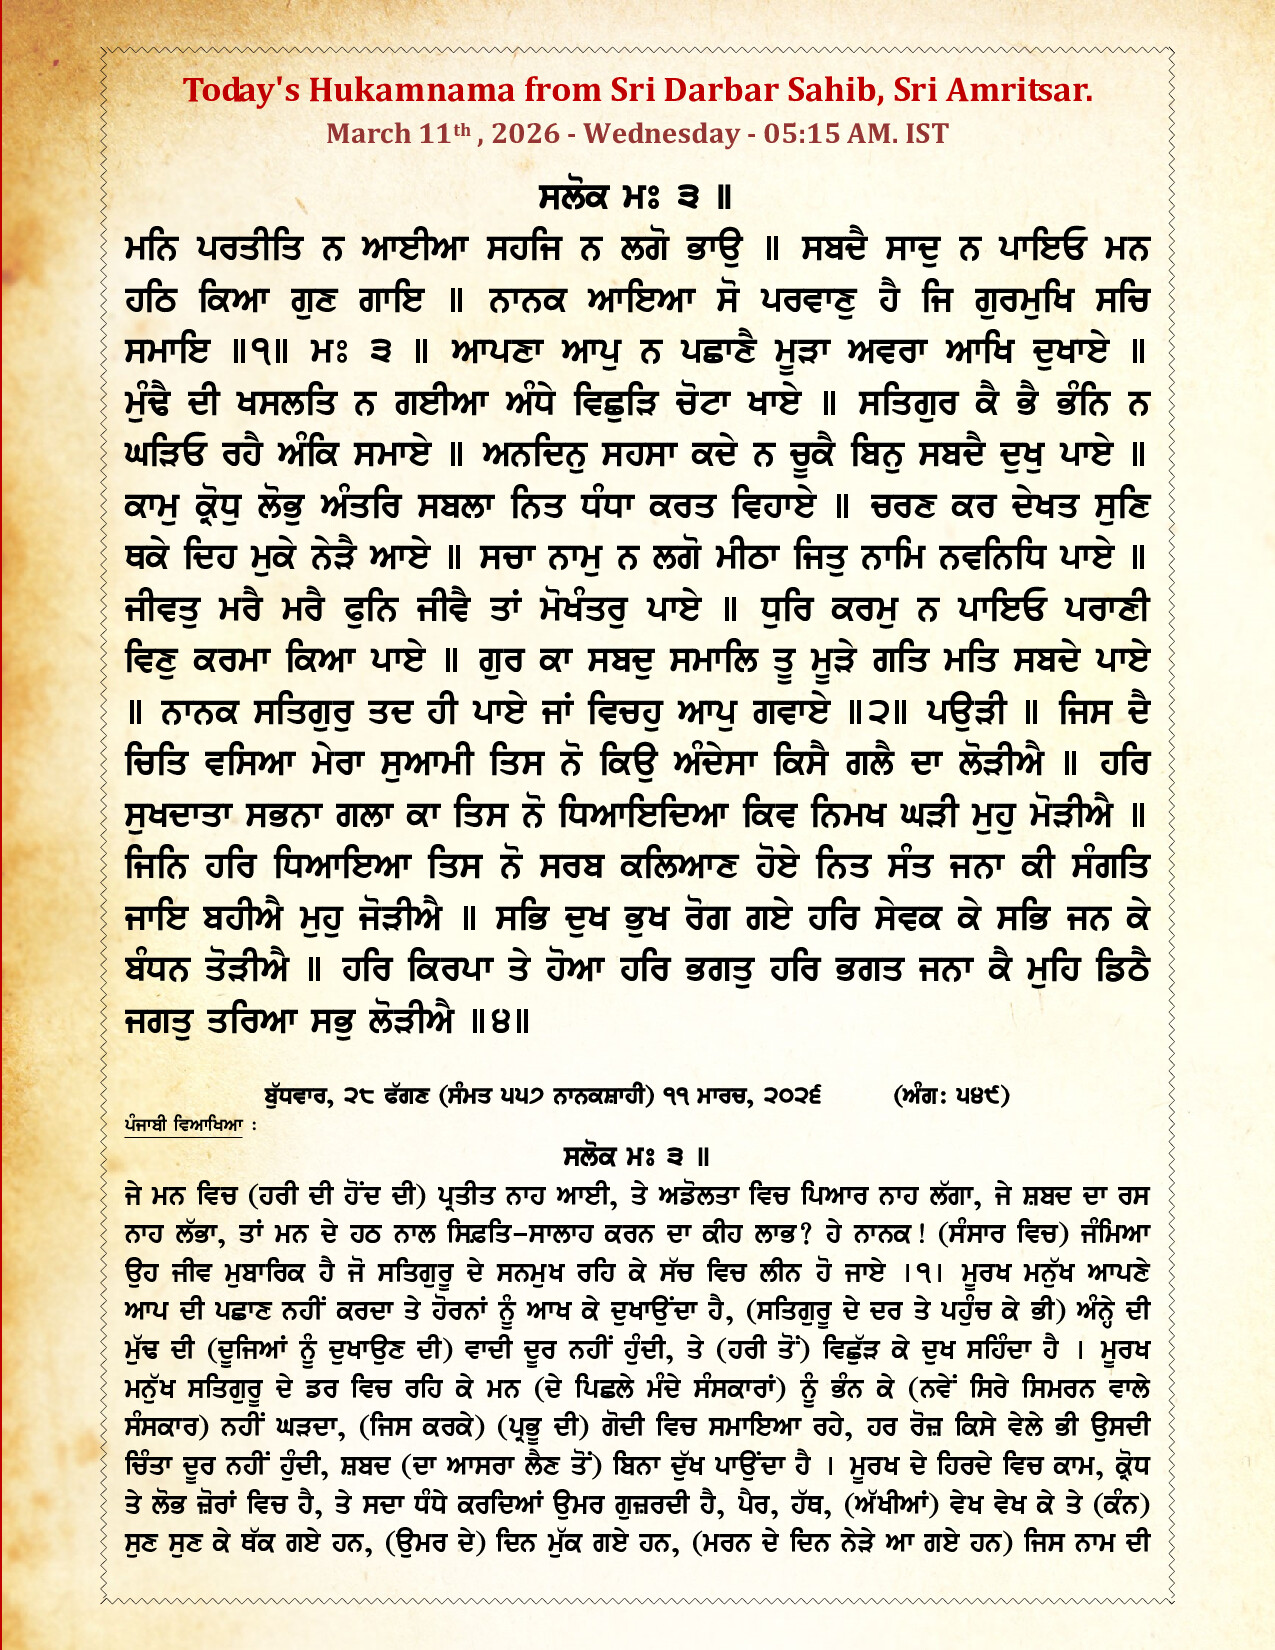 Today's Hukamnama from Sri Darbar Sahib, Sri Amritsar.
March 11th , 2026 - Wednesday - 05:15 AM. IST
ਸਲੋਕ ਮਃ ੩ ॥
ਮਨਿ ਪਰਤੀਤਿ ਨ ਆਈਆ ਸਹਜਿ ਨ ਲਗੋ ਭਾਉ ॥ ਸਬਦੈ ਸਾਦੁ ਨ ਪਾਇਓ ਮਨ
ਹਠਿ ਕਿਆ ਗੁਣ ਗਾਇ ॥ ਨਾਨਕ ਆਇਆ ਸੋ ਪਰਵਾਣੁ ਹੈ ਜਿ ਗੁਰਮੁਖਿ ਸਚਿ
ਸਮਾਇ ॥੧॥ ਮਃ ੩ ॥ ਆਪਣਾ ਆਪੁ ਨ ਪਛਾਣੈ ਮੂੜਾ ਅਵਰਾ ਆਖਿ ਦੁਖਾਏ ॥
ਮੁੰਢੈ ਦੀ ਖਸਲਤਿ ਨ ਗਈਆ ਅੰਧੇ ਵਿਛੁੜਿ ਚੋਟਾ ਖਾਏ ॥ ਸਤਿਗੁਰ ਕੈ ਭੈ ਭੰਨਿ ਨ
ਘੜਿਓ ਰਹੈ ਅੰਕਿ ਸਮਾਏ ॥ ਅਨਦਿਨੁ ਸਹਸਾ ਕਦੇ ਨ ਚੂਕੈ ਬਿਨੁ ਸਬਦੈ ਦੁਖੁ ਪਾਏ ॥
ਕਾਮੁ ਕ੍ਰੋਧੁ ਲੋਭੁ ਅੰਤਰਿ ਸਬਲਾ ਨਿਤ ਧੰਧਾ ਕਰਤ ਵਿਹਾਏ ॥ ਚਰਣ ਕਰ ਦੇਖਤ ਸੁਣਿ
ਥਕੇ ਦਿਹ ਮੁਕੇ ਨੇੜੈ ਆਏ ॥ ਸਚਾ ਨਾਮੁ ਨ ਲਗੋ ਮੀਠਾ ਜਿਤੁ ਨਾਮਿ ਨਵਨਿਧਿ ਪਾਏ ॥
ਜੀਵਤੁ ਮਰੈ ਮਰੈ ਫੁਨਿ ਜੀਵੈ ਤਾਂ ਮੋਖੰਤਰੁ ਪਾਏ ॥ ਧੁਰਿ ਕਰਮੁ ਨ ਪਾਇਓ ਪਰਾਣੀ
ਵਿਣੁ ਕਰਮਾ ਕਿਆ ਪਾਏ ॥ ਗੁਰ ਕਾ ਸਬਦੁ ਸਮਾਲਿ ਤੂ ਮੂੜੇ ਗਤਿ ਮਤਿ ਸਬਦੇ ਪਾਏ
॥ ਨਾਨਕ ਸਤਿਗੁਰੁ ਤਦ ਹੀ ਪਾਏ ਜਾਂ ਵਿਚਹੁ ਆਪੁ ਗਵਾਏ ॥੨॥ ਪਉੜੀ ॥ ਜਿਸ ਦੈ
ਚਿਤਿ ਵਸਿਆ ਮੇਰਾ ਸੁਆਮੀ ਤਿਸ ਨੋ ਕਿਉ ਅੰਦੇਸਾ ਕਿਸੈ ਗਲੈ ਦਾ ਲੋੜੀਐ ॥ ਹਰਿ
ਸੁਖਦਾਤਾ ਸਭਨਾ ਗਲਾ ਕਾ ਤਿਸ ਨੋ ਧਿਆਇਦਿਆ ਕਿਵ ਨਿਮਖ ਘੜੀ ਮੁਹੁ ਮੋੜੀਐ ॥
ਜਿਨਿ ਹਰਿ ਧਿਆਇਆ ਤਿਸ ਨੋ ਸਰਬ ਕਲਿਆਣ ਹੋਏ ਨਿਤ ਸੰਤ ਜਨਾ ਕੀ ਸੰਗਤਿ
ਜਾਇ ਬਹੀਐ ਮੁਹੁ ਜੋੜੀਐ ॥ ਸਭਿ ਦੁਖ ਭੁਖ ਰੋਗ ਗਏ ਹਰਿ ਸੇਵਕ ਕੇ ਸਭਿ ਜਨ ਕੇ
ਬੰਧਨ ਤੋੜੀਐ ॥ ਹਰਿ ਕਿਰਪਾ ਤੇ ਹੋਆ ਹਰਿ ਭਗਤੁ ਹਰਿ ਭਗਤ ਜਨਾ ਕੈ ਮੁਹਿ ਡਿਠੈ
ਜਗਤੁ ਤਰਿਆ ਸਭੁ ਲੋੜੀਐ ॥੪॥
ਬੁੱਧਵਾਰ, ੨੮ ਫੱਗਣ (ਸੰਮਤ ੫੫੭ ਨਾਨਕਸ਼ਾਹੀ) ੧੧ ਮਾਰਚ, ੨੦੨੬ (ਅੰਗ: ੫੪੯)
ਪੰਜਾਬੀ ਵਿਆਖਿਆ :
ਸਲੋਕ ਮਃ ੩ ॥
ਜੇ ਮਨ ਵਿਚ (ਹਰੀ ਦੀ ਹੋਂਦ ਦੀ) ਪ੍ਰਤੀਤ ਨਾਹ ਆਈ, ਤੇ ਅਡੋਲਤਾ ਵਿਚ ਪਿਆਰ ਨਾਹ ਲੱਗਾ, ਜੇ ਸ਼ਬਦ ਦਾ ਰਸ
ਨਾਹ ਲੱਭਾ, ਤਾਂ ਮਨ ਦੇ ਹਠ ਨਾਲ ਸਿਫ਼ਤਿ-ਸਾਲਾਹ ਕਰਨ ਦਾ ਕੀਹ ਲਾਭ? ਹੇ ਨਾਨਕ! (ਸੰਸਾਰ ਵਿਚ) ਜੰਮਿਆ
ਉਹ ਜੀਵ ਮੁਬਾਰਿਕ ਹੈ ਜੋ ਸਤਿਗੁਰੂ ਦੇ ਸਨਮੁਖ ਰਹਿ ਕੇ ਸੱਚ ਵਿਚ ਲੀਨ ਹੋ ਜਾਏ ।੧। ਮੂਰਖ ਮਨੁੱਖ ਆਪਣੇ
ਆਪ ਦੀ ਪਛਾਣ ਨਹੀਂ ਕਰਦਾ ਤੇ ਹੋਰਨਾਂ ਨੂੰ ਆਖ ਕੇ ਦੁਖਾਉਂਦਾ ਹੈ, (ਸਤਿਗੁਰੂ ਦੇ ਦਰ ਤੇ ਪਹੁੰਚ ਕੇ ਭੀ) ਅੰਨ੍ਹੇ ਦੀ
ਮੁੱਢ ਦੀ (ਦੂਜਿਆਂ ਨੂੰ ਦੁਖਾਉਣ ਦੀ) ਵਾਦੀ ਦੂਰ ਨਹੀਂ ਹੁੰਦੀ, ਤੇ (ਹਰੀ ਤੋਂ) ਵਿਛੁੱੜ ਕੇ ਦੁਖ ਸਹਿੰਦਾ ਹੈ । ਮੂਰਖ
ਮਨੁੱਖ ਸਤਿਗੁਰੂ ਦੇ ਡਰ ਵਿਚ ਰਹਿ ਕੇ ਮਨ (ਦੇ ਪਿਛਲੇ ਮੰਦੇ ਸੰਸਕਾਰਾਂ) ਨੂੰ ਭੰਨ ਕੇ (ਨਵੇਂ ਸਿਰੇ ਸਿਮਰਨ ਵਾਲੇ
ਸੰਸਕਾਰ) ਨਹੀਂ ਘੜਦਾ, (ਜਿਸ ਕਰਕੇ) (ਪ੍ਰਭੂ ਦੀ) ਗੋਦੀ ਵਿਚ ਸਮਾਇਆ ਰਹੇ, ਹਰ ਰੋਜ਼ ਕਿਸੇ ਵੇਲੇ ਭੀ ਉਸਦੀ
ਚਿੰਤਾ ਦੂਰ ਨਹੀਂ ਹੁੰਦੀ, ਸ਼ਬਦ (ਦਾ ਆਸਰਾ ਲੈਣ ਤੋਂ) ਬਿਨਾ ਦੁੱਖ ਪਾਉਂਦਾ ਹੈ । ਮੂਰਖ ਦੇ ਹਿਰਦੇ ਵਿਚ ਕਾਮ, ਕ੍ਰੋਧ
ਤੇ ਲੋਭ ਜ਼ੋਰਾਂ ਵਿਚ ਹੈ, ਤੇ ਸਦਾ ਧੰਧੇ ਕਰਦਿਆਂ ਉਮਰ ਗੁਜ਼ਰਦੀ ਹੈ, ਪੈਰ, ਹੱਥ, (ਅੱਖੀਆਂ) ਵੇਖ ਵੇਖ ਕੇ ਤੇ (ਕੰਨ)
ਸੁਣ ਸੁਣ ਕੇ ਥੱਕ ਗਏ ਹਨ, (ਉਮਰ ਦੇ) ਦਿਨ ਮੁੱਕ ਗਏ ਹਨ, (ਮਰਨ ਦੇ ਦਿਨ ਨੇੜੇ ਆ ਗਏ ਹਨ) ਜਿਸ ਨਾਮ ਦੀ